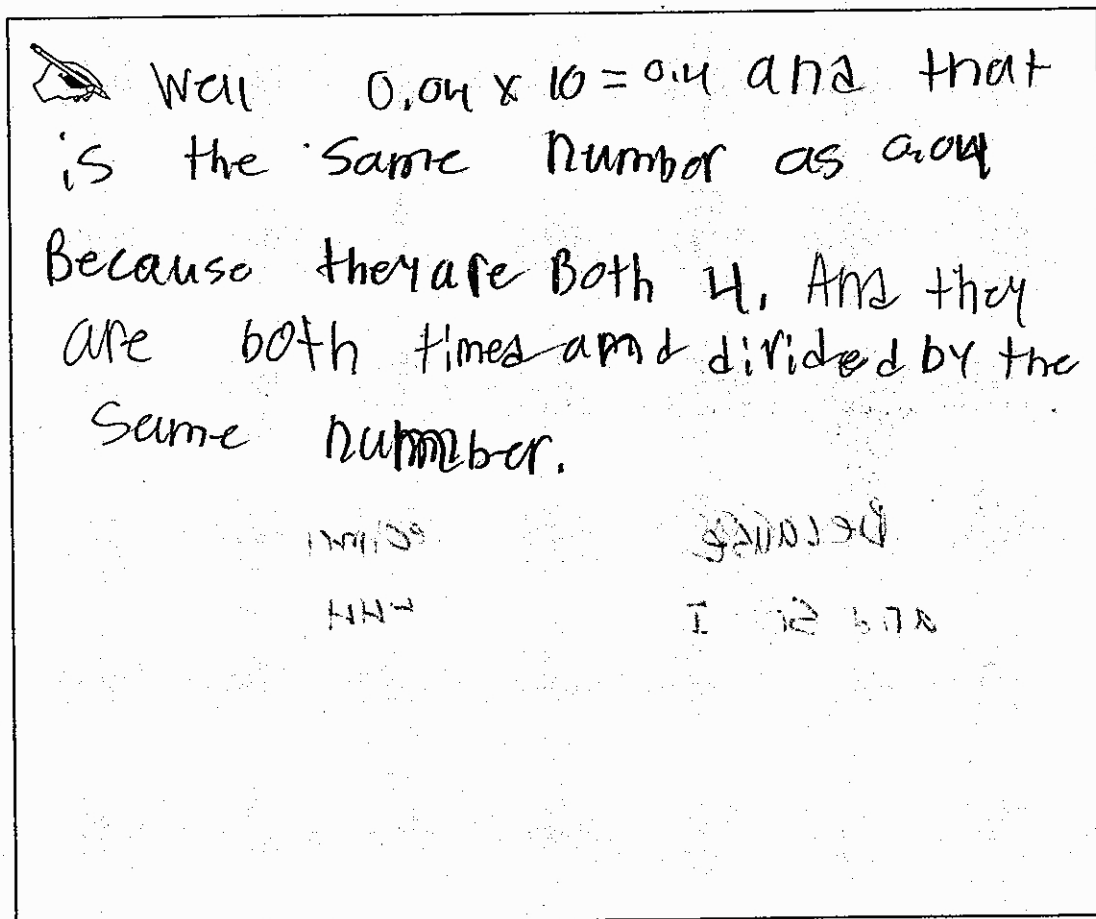 Well 0.04 x 10 = 0.4 and that
is the same number as 0.04
Because they are Both 4. And they
are both timed and divided by the
same number.
Because
and I